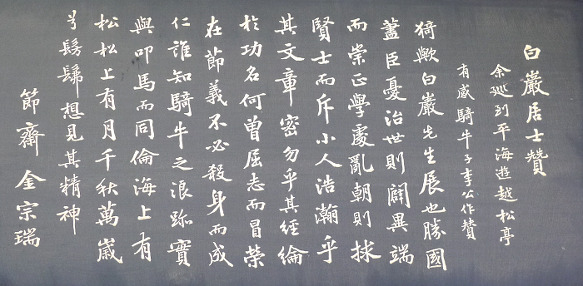 白巖居士贊
余巡到平海遊越松亭
有感騎牛子李公作贊
猗歟白巖先生展也勝國
藎臣憂治世則闢異端
而崇正學處亂朝則捄
賢士而斥小人浩瀚乎
其文章密勿乎其經綸
於功名何曾屈志而冒榮
在節義不必殺身而成
仁誰知騎牛之浪跡實
與叩馬而同倫海上有
松松上有月千秋萬歲
兮髣髴想見其精神
節齋金宗瑞